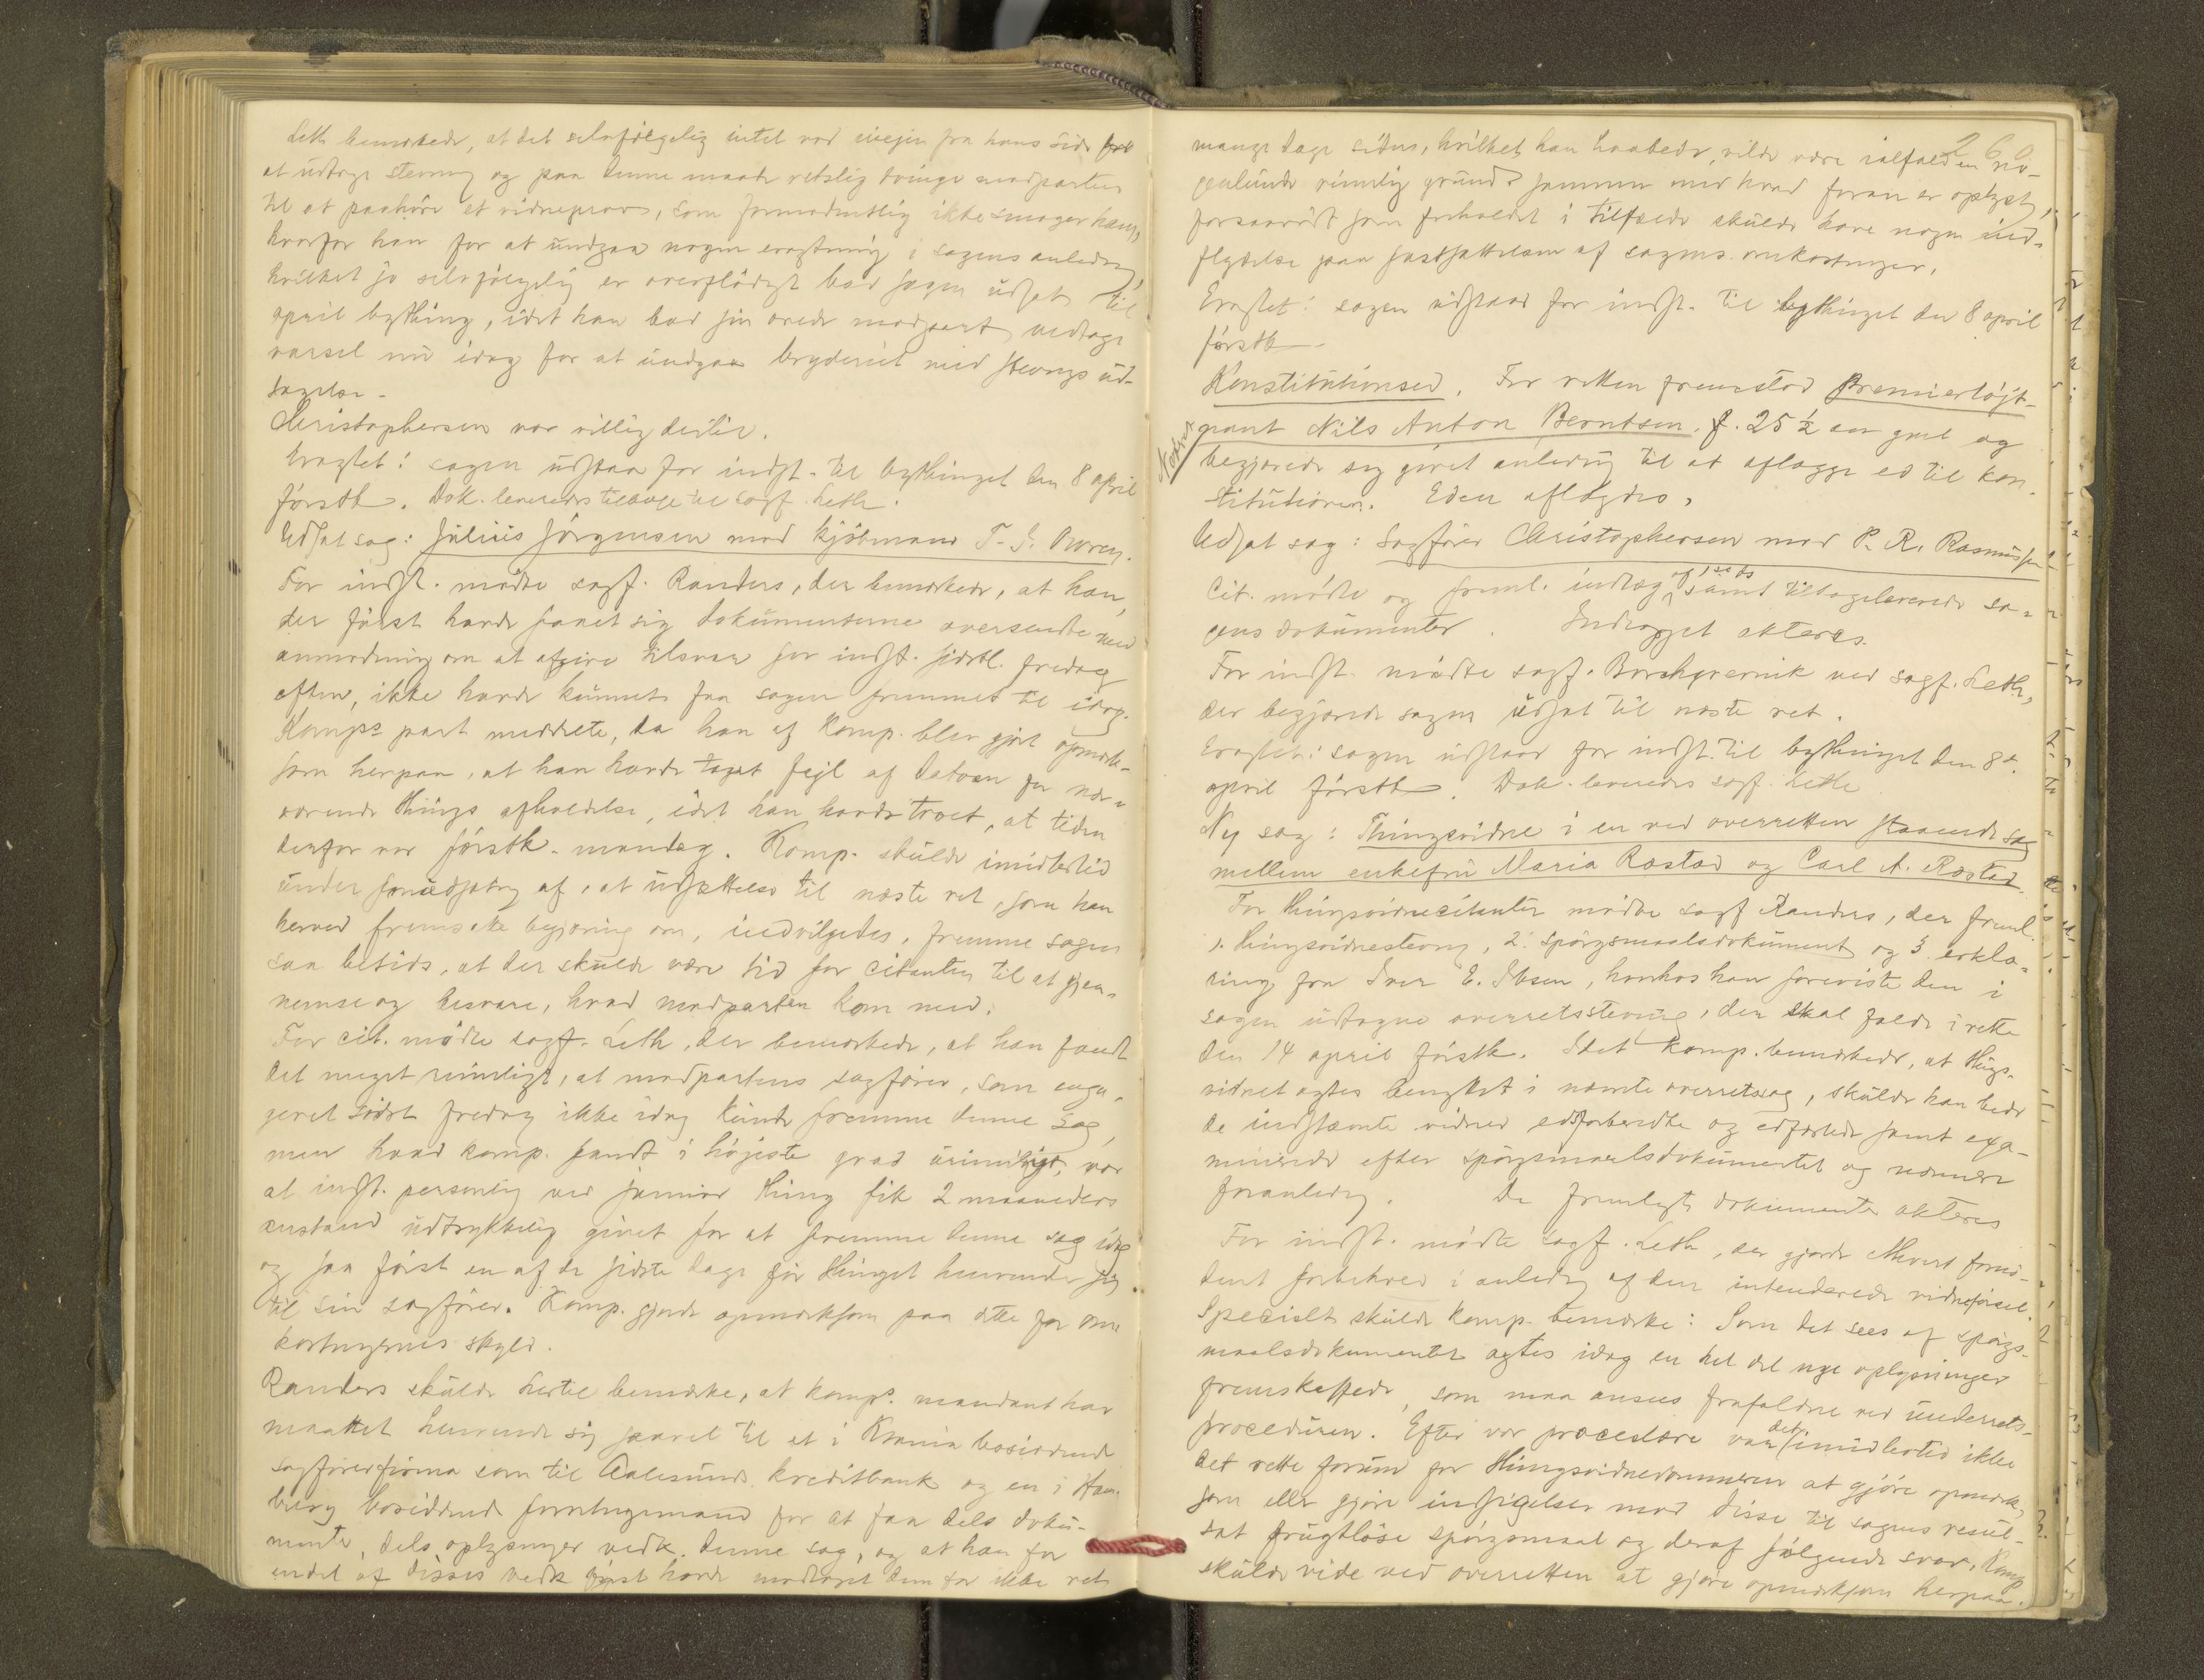 Leth bemærkede, at det selvfølgelig intet var iveien fra hans side for
at udtage stevning og paa denne maade retslig tvinge modparten
til at paahøre et vidneprov, som formodentlig ikke smager ham,
hvorfor han for at undgaa nogen eragtning i sagens anledning,
hvilket jo selvfølgelig er overflødigt bad sagen udsat til
april bything, idet han bad sin ærede modpart vedtage
varsel nu idag for at undgaa bryderiet med stevnings ud-
tagelse.
Christophersen var villig dertil.
Eragtet: sagen udstaar for indst. til bythinget den 8 april
førstk. Dok. leveredes tilbage til sagf. Leth.
Udsat sag: Julius Jørgensen mod kjøbmand T. S.
For indst. mødte sagf. Randers, der bemærkede, at han,
der først havde faaet sig dokumenterne oversendte med
anmodning om at afgive tilsvar for indst. sidstl. fredag
aften, ikke havde kunnet faa sagen fremmet til idag.
Komps part meddelte, da han af komp. blev gjort opmærk-
som herpaa, at han havde taget fejl af datoen for nær-
værende things afholdelse, idet han havde troet, at tiden
derfor var førstk. mandag. Komp. skulde imidlertid
under forudsætng af, at udsættelse til næste ret, som han
herved fremsatte begjæring om, indvilgedes, fremme sagen
saa betids, at der skulde være tid for citanten til at gjen-
nemse og besvare, hvad modparten kom med.
For cit. mødte sagf. Leth, der bemærkede, at han fandt
det meget rimeligt, at modpartens sagfører, som enga-
geret sidst fredag ikke idag kunde fremme denne sag,
men hvad komp. fandt i højeste grad urimeligt, var
at indst. personlig ved januar thing fik 2 maaneders
anstand udtrykkelig givet for at fremme denne sag idag
og saa først en af de sidste dage før thinget henvender sig
til sin sagfører. Komp. gjorde opmærksom paa dette for om-
kostningernes skyld.
Randers skulde hertil bemærke, at komps. mandant har
maattet henvende sig saavel til et i Kr.ania bosiddende
sagførerfirma som til Aalesunds kreditbank og en i Ham-
burg bosiddende forretningsmand for at faa dels doku-
menter, dels oplysninger vedk. denne sag, og at han for
endel af disses vedk. først havde modtaget dem for ikke ret
260
mange dage siden, hvilket han haabede, vilde være ialfald en no-
genlunde rimelig grund sammen med hvad foran er oplyst,
forsaavidt som forholdet i tilfælde skulde have nogen ind-
flydelse paa fastsættelsen af sagens omkostninger.
Eragtet: sagen udstaar for indst. til bythinget den 8 april
førstk.
Konstitutionsed. For retten fremstod Premierløjt-
nant Nils Anton Berntsen. f. 25 ½ aar gml og
begjærede sig givet anledng til at aflægge ed til kon-
stitutionen. Eden aflagdes.
Udsat sag: Sagfører Christophersen mod P. R. Rasmussen
Cit. mødte og freml. indlæg af samt tilbageleverede sa-
gens dokumenter. Indlægget akteres.
For indst. mødte sagf. Borchgrevink ved sagf. Leth,
der begjærede sagen udsat til næste ret.
Eragtet: sagen udstaar for indst. til bythinget den 8de
april førstk. Dok. leveredes sagf. Leth
Ny sag: Thingsvidne i en ved overretten staaende sag
mellem enkefru Maria Røstad og Carl A. Røstad.
For thingsvidnecitanten mødte sagf Randers, der freml.
1. thingsvidnestevng, 2. spørgsmaalsdokument og 3. erklæ-
ring fra Iver E. Ibsen, hvorhos han foreviste den i
sagen udtagne overretsstevning, der skal falde i rette
den 14 april førstk. Idet komp. bemærkede, at things-
vidnet agtes benyttet i nævnte overretssag, skulde han bede
de indstævnte vidner edsforberedte og edfæstede samt exa-
minerede efter spørgsmaalsdokumentet og nærmere
foranledng. De fremlagte dokumenter akteres
For indst. mødte sagf. Leth, der gjorde ethvert fornø-
dent forbehold i anledng af den intenderede vidneførsel.
Specielt skulde komp. bemærke: Som det sees af spørgs-
maalsdokumentet agtes idag en hel del nye oplysninger
fremskaffede, som maa ansees frafaldne ved underrets-
proceduren. Efter vor proceslære var det imidlertid ikke
det rette forum for thingsvidnedommeren at gjøre opmærk-
som eller gjøre indsigelser mod disse til sagens resul-
tat frugtløse spørgsmaal og deraf følgende svar. Komp
skulde vide ved overretten at gjøre opmærksom herpaa.